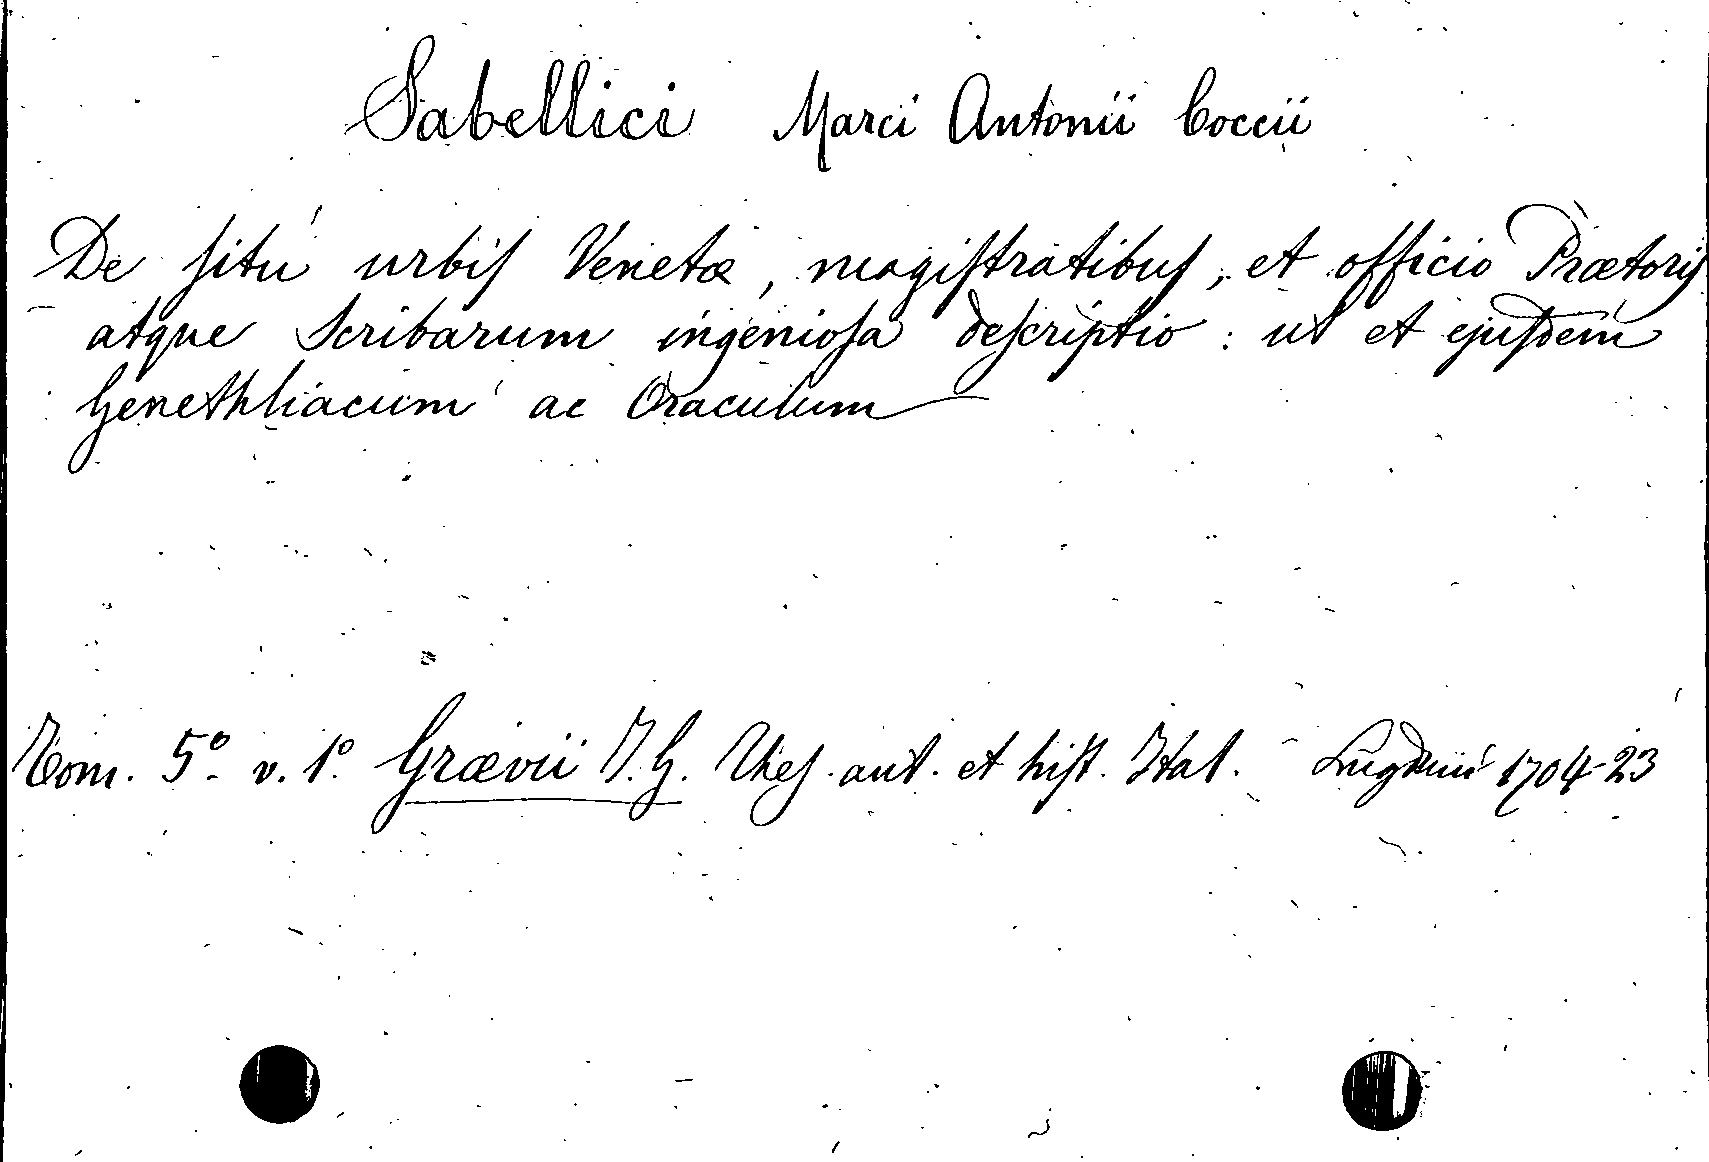 Sabellici Marci Antonii Coccii
De situ urbis Venetæ, magistratibus, et officio Prætoris
atque Scribarum ingeniosa descriptio: ut et ejusdem
Genethliacum ac Oraculum
Tom. 5º v. 1º Grævii J. G. Thes. ant. et hist. Ital. Lugduni 1704-23